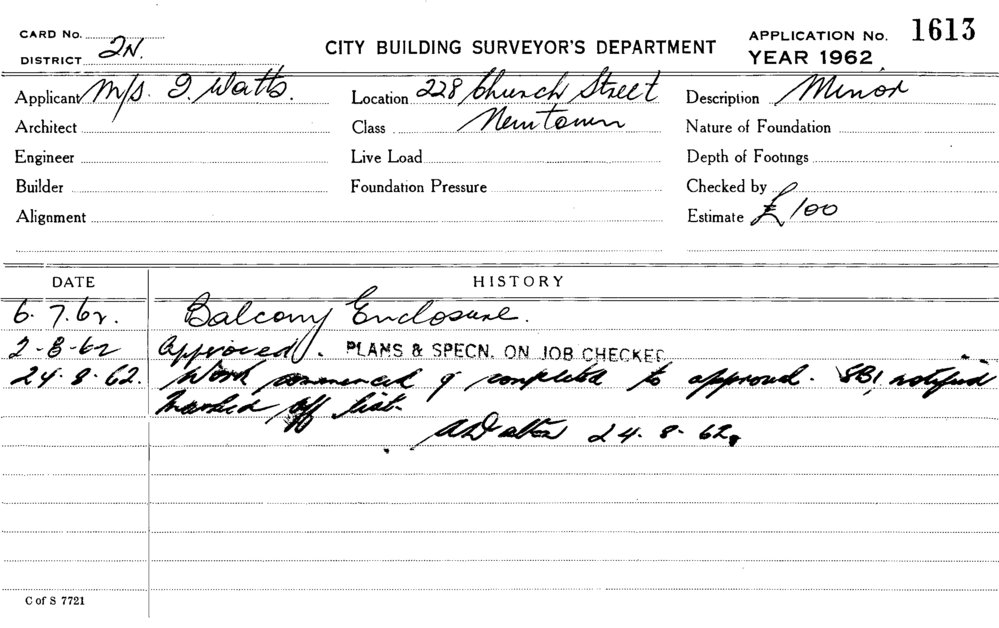 CARD No.
DISTRICT 2N.
CITY BUILDING SURVEYOR'S DEPARTMENT
APPLICATION No. 1613
YEAR 1962
Applicant M/s. I. Watts.
Location 228 Church Street
Description Minor
Architect
Class Newtown
Nature of Foundation
Engineer
Live Load
Depth of Footings
Builder
Foundation Pressure
Checked by
Alignment
Estimate £100
DATE
HISTORY
6. 7. 62. Balcony Enclosure.
2-8-62 Approved. PLANS & SPECN. ON JOB CHECKED
24. 8. 62. Work commenced & completed to approval. SBI notified
Marked off list.
24. 8. 62.
C of S 7721